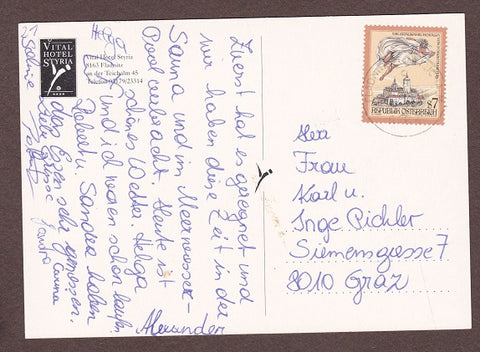 VITAL
HOTEL
STYRIA
Vital Hotel Styria
8163 Fladnitz
an der Teichalm 45
Telefon 03179/23314
Zuerst hat es geregnet und
wir haben diese Zeit in der
Sauna und im Meerwasser-
Pool verbracht. Heute ist
schönes Wetter. Helga
und ich waren schon laufen
Robert u. Sandra haben
das Essen sehr genossen.
Liebe Grüsse
Sandra
Alexander
S 7
REPUBLIK ÖSTERREICH
Herr
Frau
Karl u.
Inge Pichler
Siemensgasse 7
8010 Graz